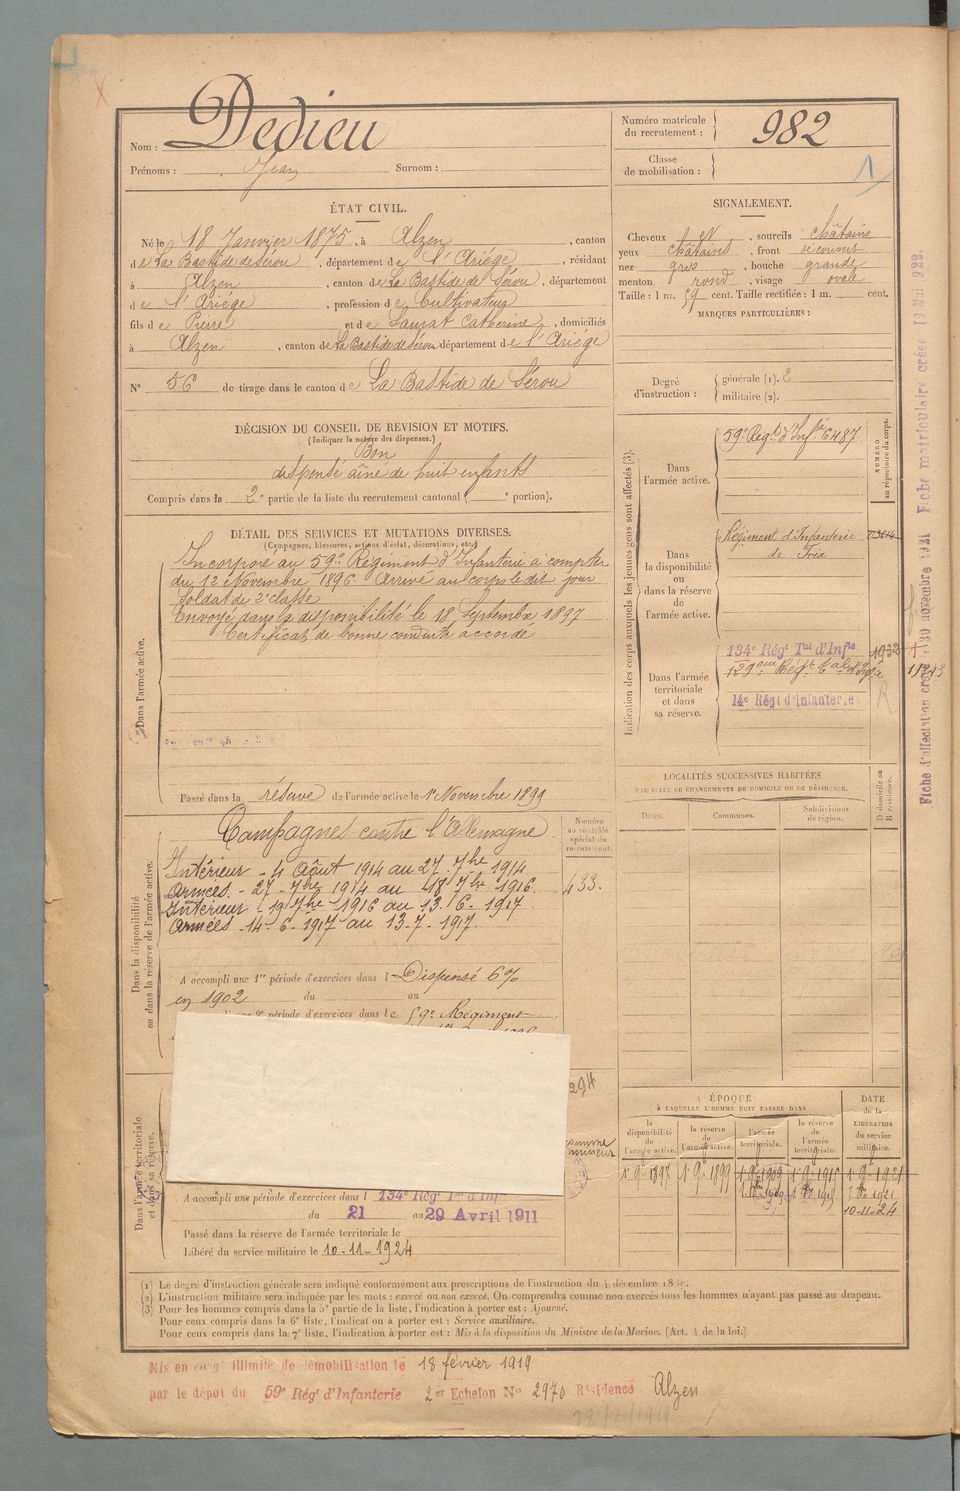 Nom : Dedieu
Prénoms : Jean Surnom :
Numéro matricule du recrutement : 982
Classe de mobilisation :
ÉTAT CIVIL.
Né le 18 Janvier 1875, à Alzen, canton
de La Bastide de Sérou, département de l'Ariège, résidant
à Alzen, canton de La Bastide de Sérou, département
de l'Ariège, profession de Cultivateur
fils de Pierre et de Saurat Catherine, domiciliés
à Alzen, canton de La Bastide de Sérou département de l'Ariège
N° 56 de tirage dans le canton de La Bastide de Sérou
SIGNALEMENT.
Cheveux N, sourcils châtains
yeux châtains, front découvert
nez gros, bouche grande
menton rond, visage ovale
Taille : 1 m. 59 cent. Taille rectifiée : 1 m. cent.
MARQUES PARTICULIÈRES :
Degré d'instruction : générale (1). 2
militaire (2).
DÉCISION DU CONSEIL DE REVISION ET MOTIFS.
(Indiquer la nature des dispenses.)
Bon
dispensé aîné de huit enfants
Compris dans la 2e partie de la liste du recrutement cantonal ( e portion).
DÉTAIL DES SERVICES ET MUTATIONS DIVERSES.
(Campagnes, blessures, actions d'éclat, décorations, etc.)
Dans l'armée active.
Incorporé au 59e Régiment d'Infanterie à compter
du 12 Novembre 1896 Arrivé au corps le dit jour
Soldat de 2e classe
Envoyé dans la disponibilité le 18 Septembre 1897
Certificat de bonne conduite accordé
Passé dans la réserve de l'armée active le 1er Novembre 1899
Indication des corps auxquels les jeunes gens sont affectés (3).
NUMÉRO au répertoire du corps.
Dans l'armée active.
59e Régt d'Infie 6487
Dans la disponibilité ou dans la réserve de l'armée active.
Régiment d'Infanterie
de Foix
Dans l'armée territoriale et dans sa réserve.
134e Régt Tal d'Infie 1932
129eme Régt Tal d'Infie
14e Régt d'Infanterie
Fiche d'affectation créée 30 novembre 1921 Fiche matriculaire créée 10 Mai 1922
LOCALITÉS SUCCESSIVES HABITÉES
PAR SUITE DE CHANGEMENTS DE DOMICILE OU DE RÉSIDENCE.
Dates. Communes. Subdivisions de région. D domicile ou R résidence.
Dans la disponibilité ou dans la réserve de l'armée active.
Campagnes contre l'Allemagne
Numéro au contrôle spécial du recrutement.
433.
Intérieur - 4 Août 1914 au 27. 7bre 1914
Armées. - 27 - 7bre 1914 au 18 7bre 1916.
Intérieur - 19 7bre 1916 au 13. 6 - 1917
Armées - 14 - 6 - 1917 au 13 - 7 - 1917.
A accompli une 1re période d'exercices dans l Dispensé 6%
en 1902 du au
période d'exercices dans le 59e Régiment
Dans l'armée territoriale et dans sa réserve.
A accompli une période d'exercices dans l 134e Régt Tal d'Inf
du 21 au 29 Avril 1911
Passé dans la réserve de l'armée territoriale le
Libéré du service militaire le 10-11-1924
ÉPOQUE
À LAQUELLE L'HOMME DOIT PASSER DANS
DATE de la LIBÉRATION du service militaire.
la disponibilité de l'armée active. la réserve de l'armée active. l'armée territoriale. la réserve de l'armée territoriale.
1er 9 - 1897 1er 9 - 1899 1er 9 - 1909 1er 9 - 1915 1er 9 - 1921
10-11-24
(1) Le degré d'instruction générale sera indiqué conformément aux prescriptions de l'instruction du 4 décembre 18
(2) L'instruction militaire sera indiquée par les mots : exercé ou non exercé. On comprendra comme non exercés tous les hommes n'ayant pas passé au drapeau.
(3) Pour les hommes compris dans la 5e partie de la liste, l'indication à porter est : Ajourné.
Pour ceux compris dans la 6e liste, l'indication à porter est : Service auxiliaire.
Pour ceux compris dans la 7e liste, l'indication à porter est : Mis à la disposition du Ministre de la Marine. (Art. 4 de la loi.)
Mis en congé illimité de démobilisation le 18 février 1919
par le dépôt du 59e Régt d'Infanterie 2er Echelon N° 2970 Résidence Alzen
28/2/1919